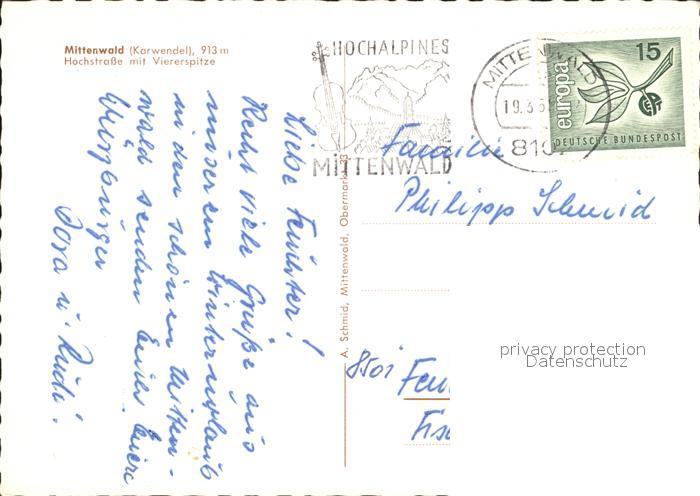 Mittenwald (Karwendel), 913 m
Hochstraße mit Viererspitze
HOCHALPINES
MITTENWALD
MITTENWALD
19.3.6
810
europa
15
DEUTSCHE BUNDESPOST
Liebe
Recht viele Grüße aus
unserem Winterurlaub
in dem schönen Mitten-
wald senden Euch Eure
Würzburger
u. Rudi.
A. Schmid, Mittenwald, Obermarkt 33
Familie
Philipp Schmid
8501 Feu
Fis
privacy protection
Datenschutz